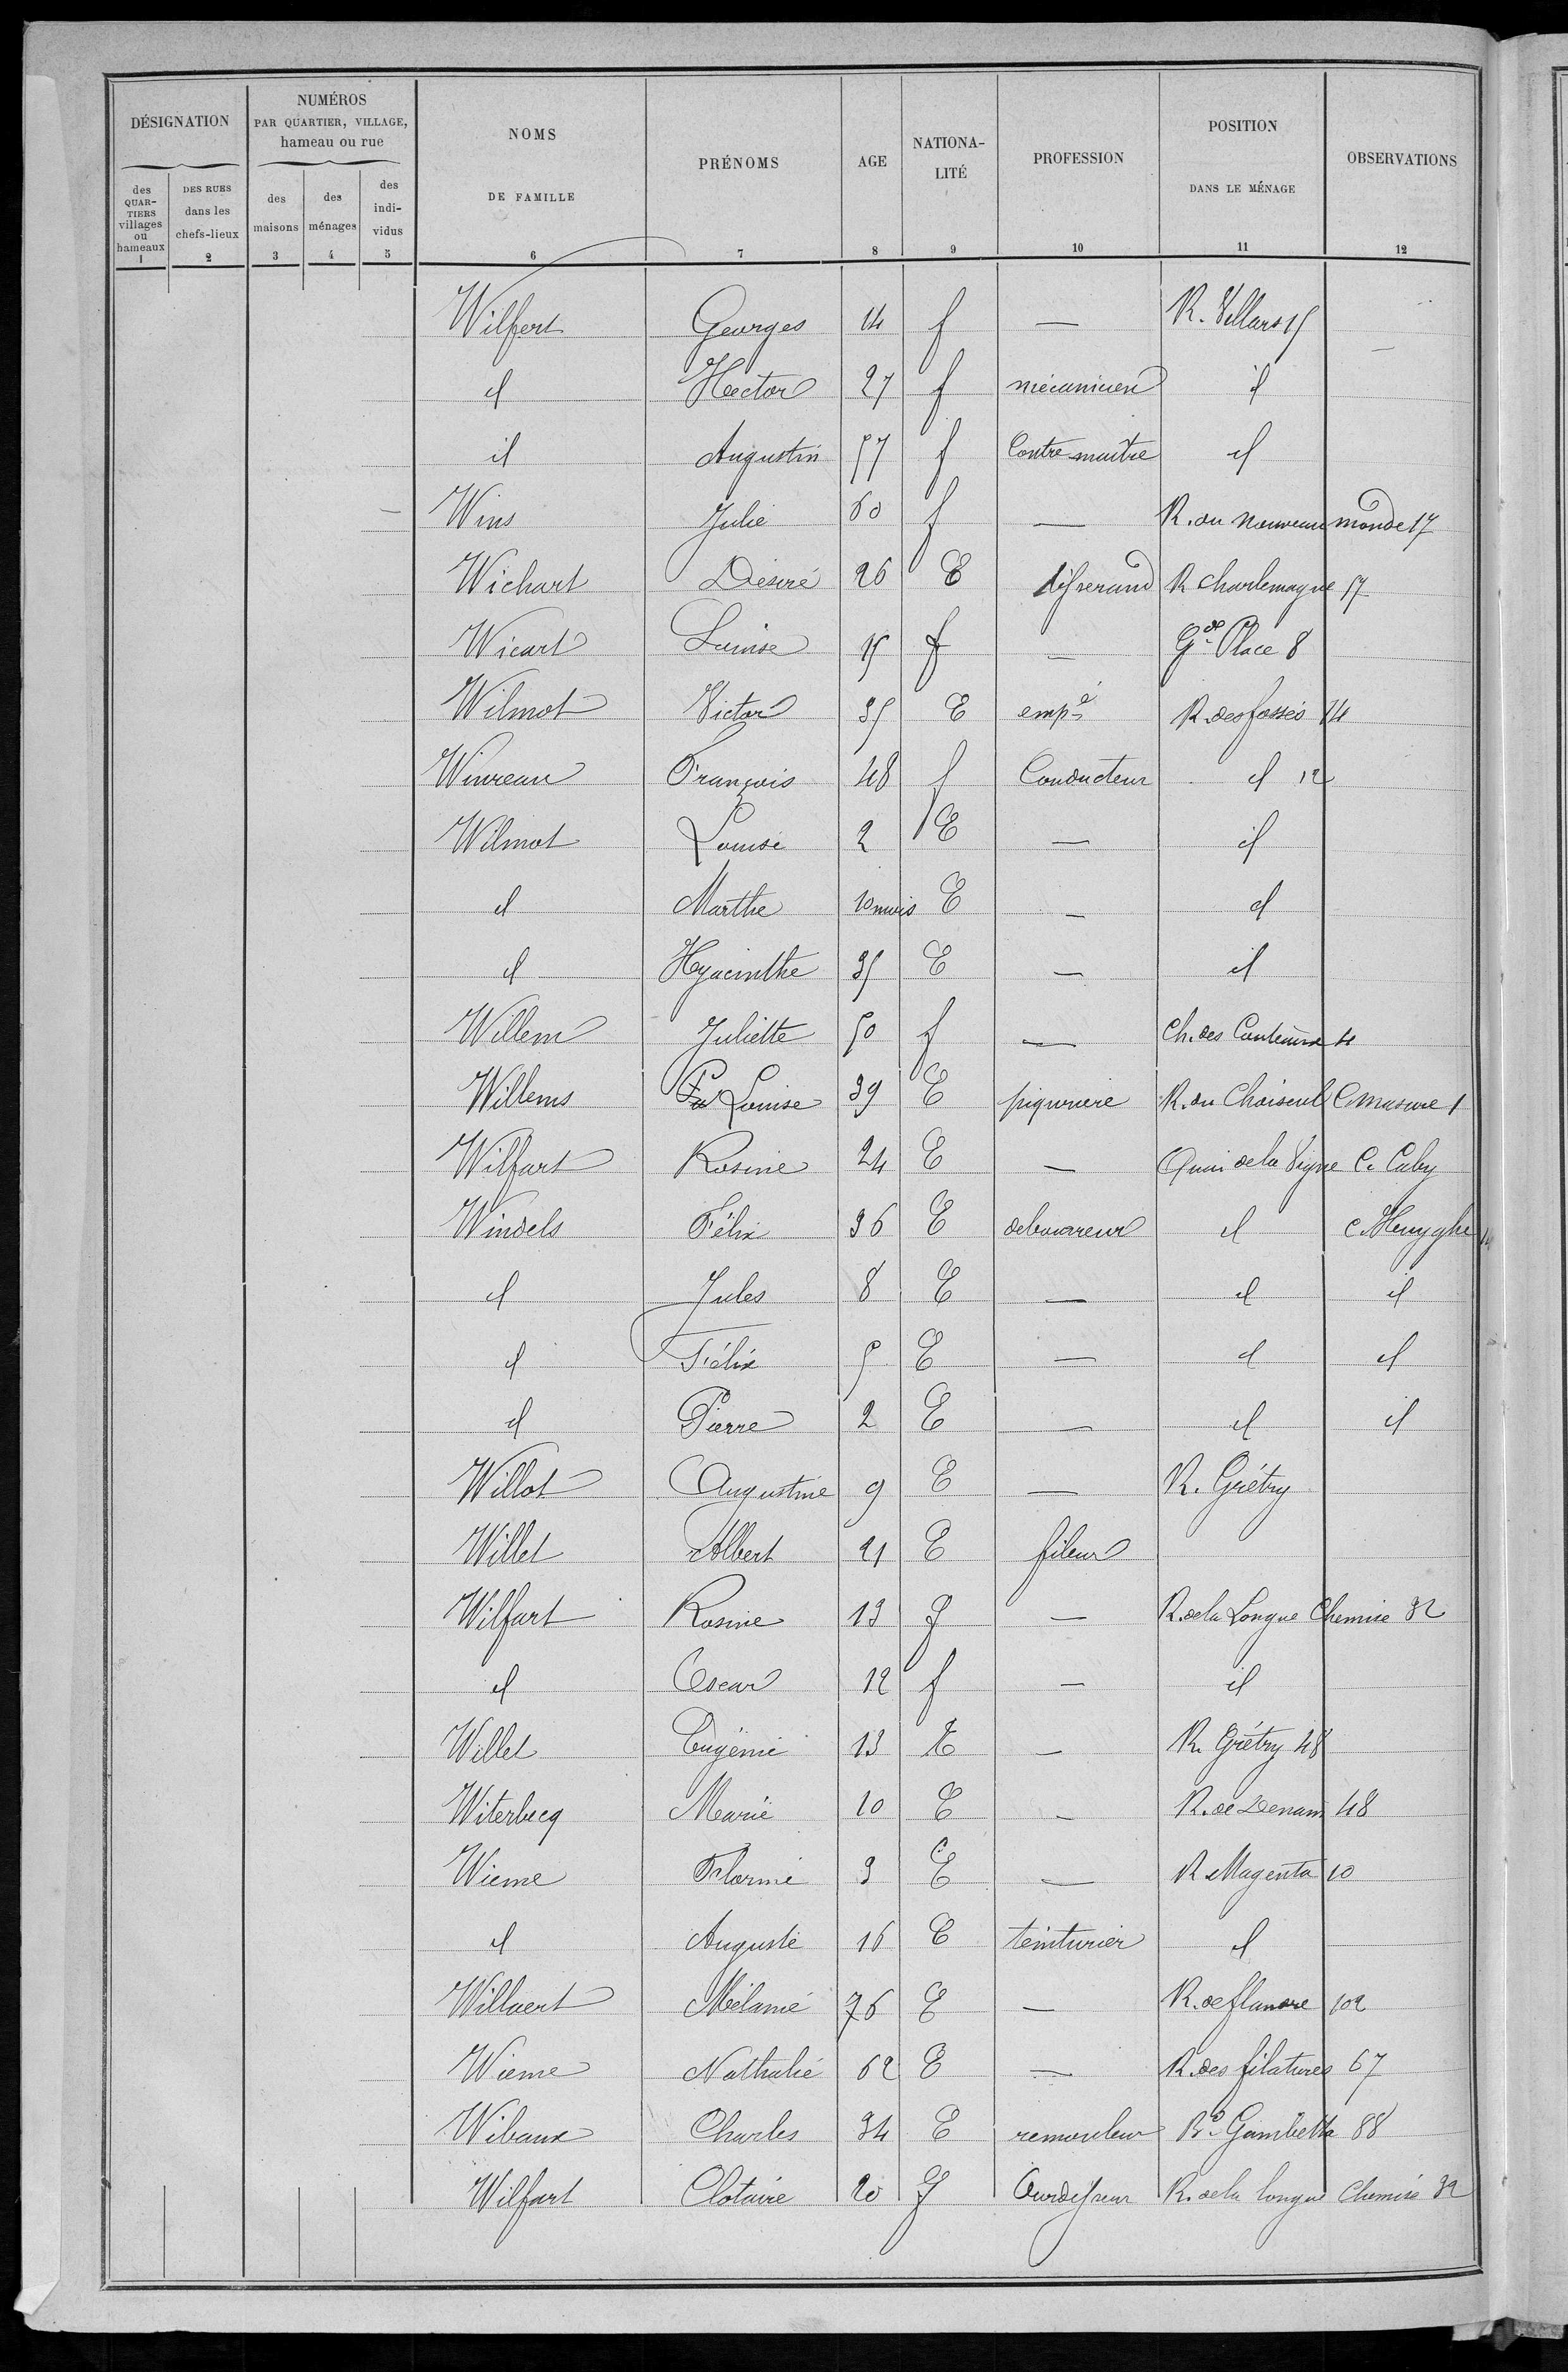 DÉSIGNATION
NUMÉROS
PAR QUARTIER, VILLAGE,
hameau ou rue
NOMS
DE FAMILLE
PRÉNOMS
AGE
NATIONA-
LITÉ
PROFESSION
POSITION
DANS LE MÉNAGE
OBSERVATIONS
des
QUAR-
TIERS
villages
ou
hameaux
DES RUES
dans les
chefs-lieux
des
maisons
des
ménages
des
indi-
vidus
1 2 3 4 5 6 7 8 9 10 11 12
Wilfert Georges 14 f — R. Villars 15
id Hector 27 f mécanicien id
id Augustin 57 f Contre maître id
Wins Julie 60 f — R. du Nouveau monde 17
Wichart Désiré 26 E tisserand R Charlemagne 57
Wicart Louise 15 f — Gde Place 8
Wilmot Victor 35 E empé R. des fossés 14
Winreau François 48 f Conducteur id 12
Wilmot Louise 2 E — id
id Marthe 10 mois E — id
id Hyacinthe 35 E — id
Willem Juliette 50 f — Ch. des Couteaux 4
Willems Louise 39 E piqurière R. du Choiseul C. masure 1
Wilfart Rosine 24 E — Quai de la Vigne C. Caby
Windels Félix 36 E débourreur id C. Heuyghe 14
id Jules 8 E — id id
id Félix 5 E — id id
id Pierre 2 E — id id
Willot Augustine 9 E — R. Grétry
Willet Albert 21 E fileur
Wilfart Rosine 13 f — R. de la Longue Chemise 32
id Oscar 12 f — id
Willet Eugénie 13 E — R. Grétry 48
Witerbecq Marie 10 E — R. de Denain 48
Wieme Florine 3 E — R Magenta 10
id Auguste 16 E teinturier id
Willaert Mélanie 76 E — R. de flandre 102
Wieme Nathalie 62 E — R. des filatures 67
Wibaux Charles 34 E remouleur Bd Gambetta 88
Wilfart Clotaire 20 f Ourdisseur R. de la longue Chemise 32